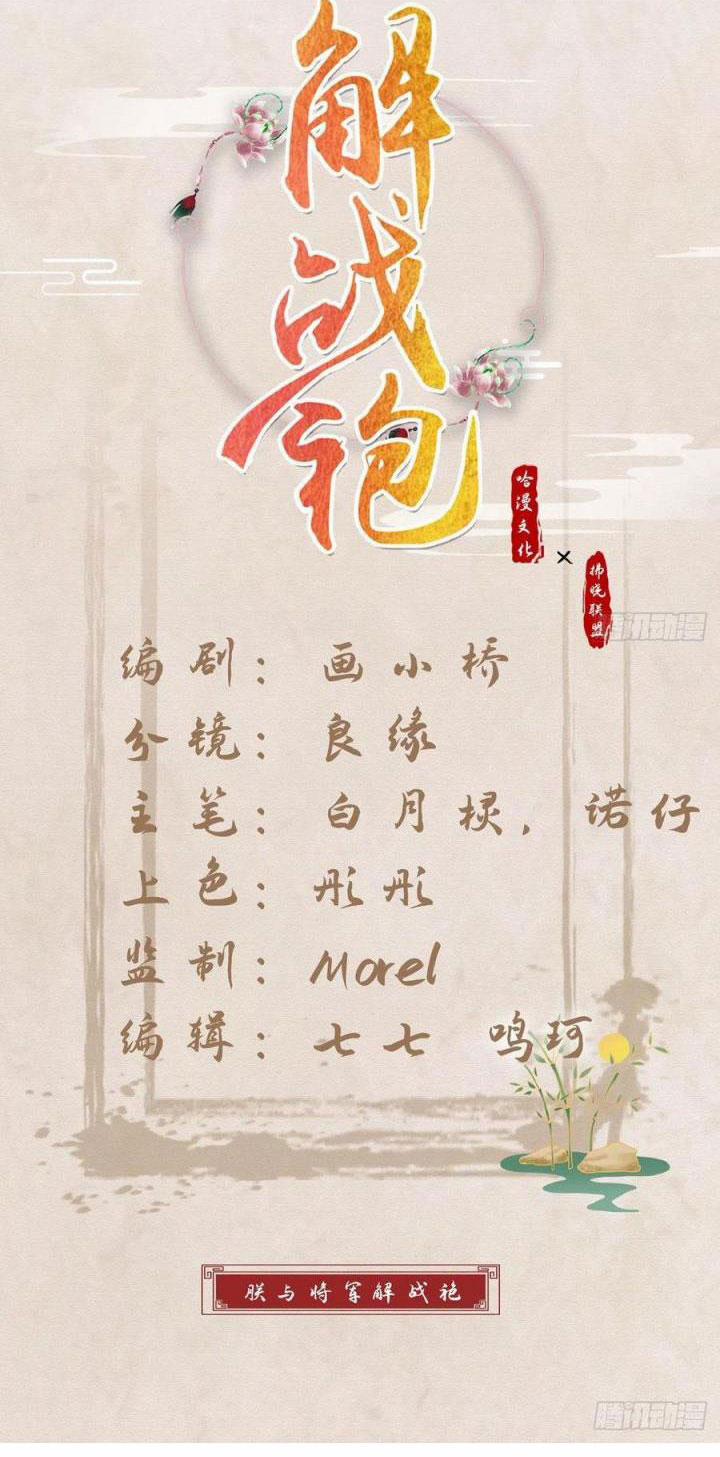 解战袍
哈漫文化
×
拂晓联盟
腾讯动漫
编剧：画小桥
分镜：良缘
主笔：白月椂，诺仔
上色：彤彤
监制：Morel
编辑：七七 鸣珂
朕与将军解战袍
腾讯动漫